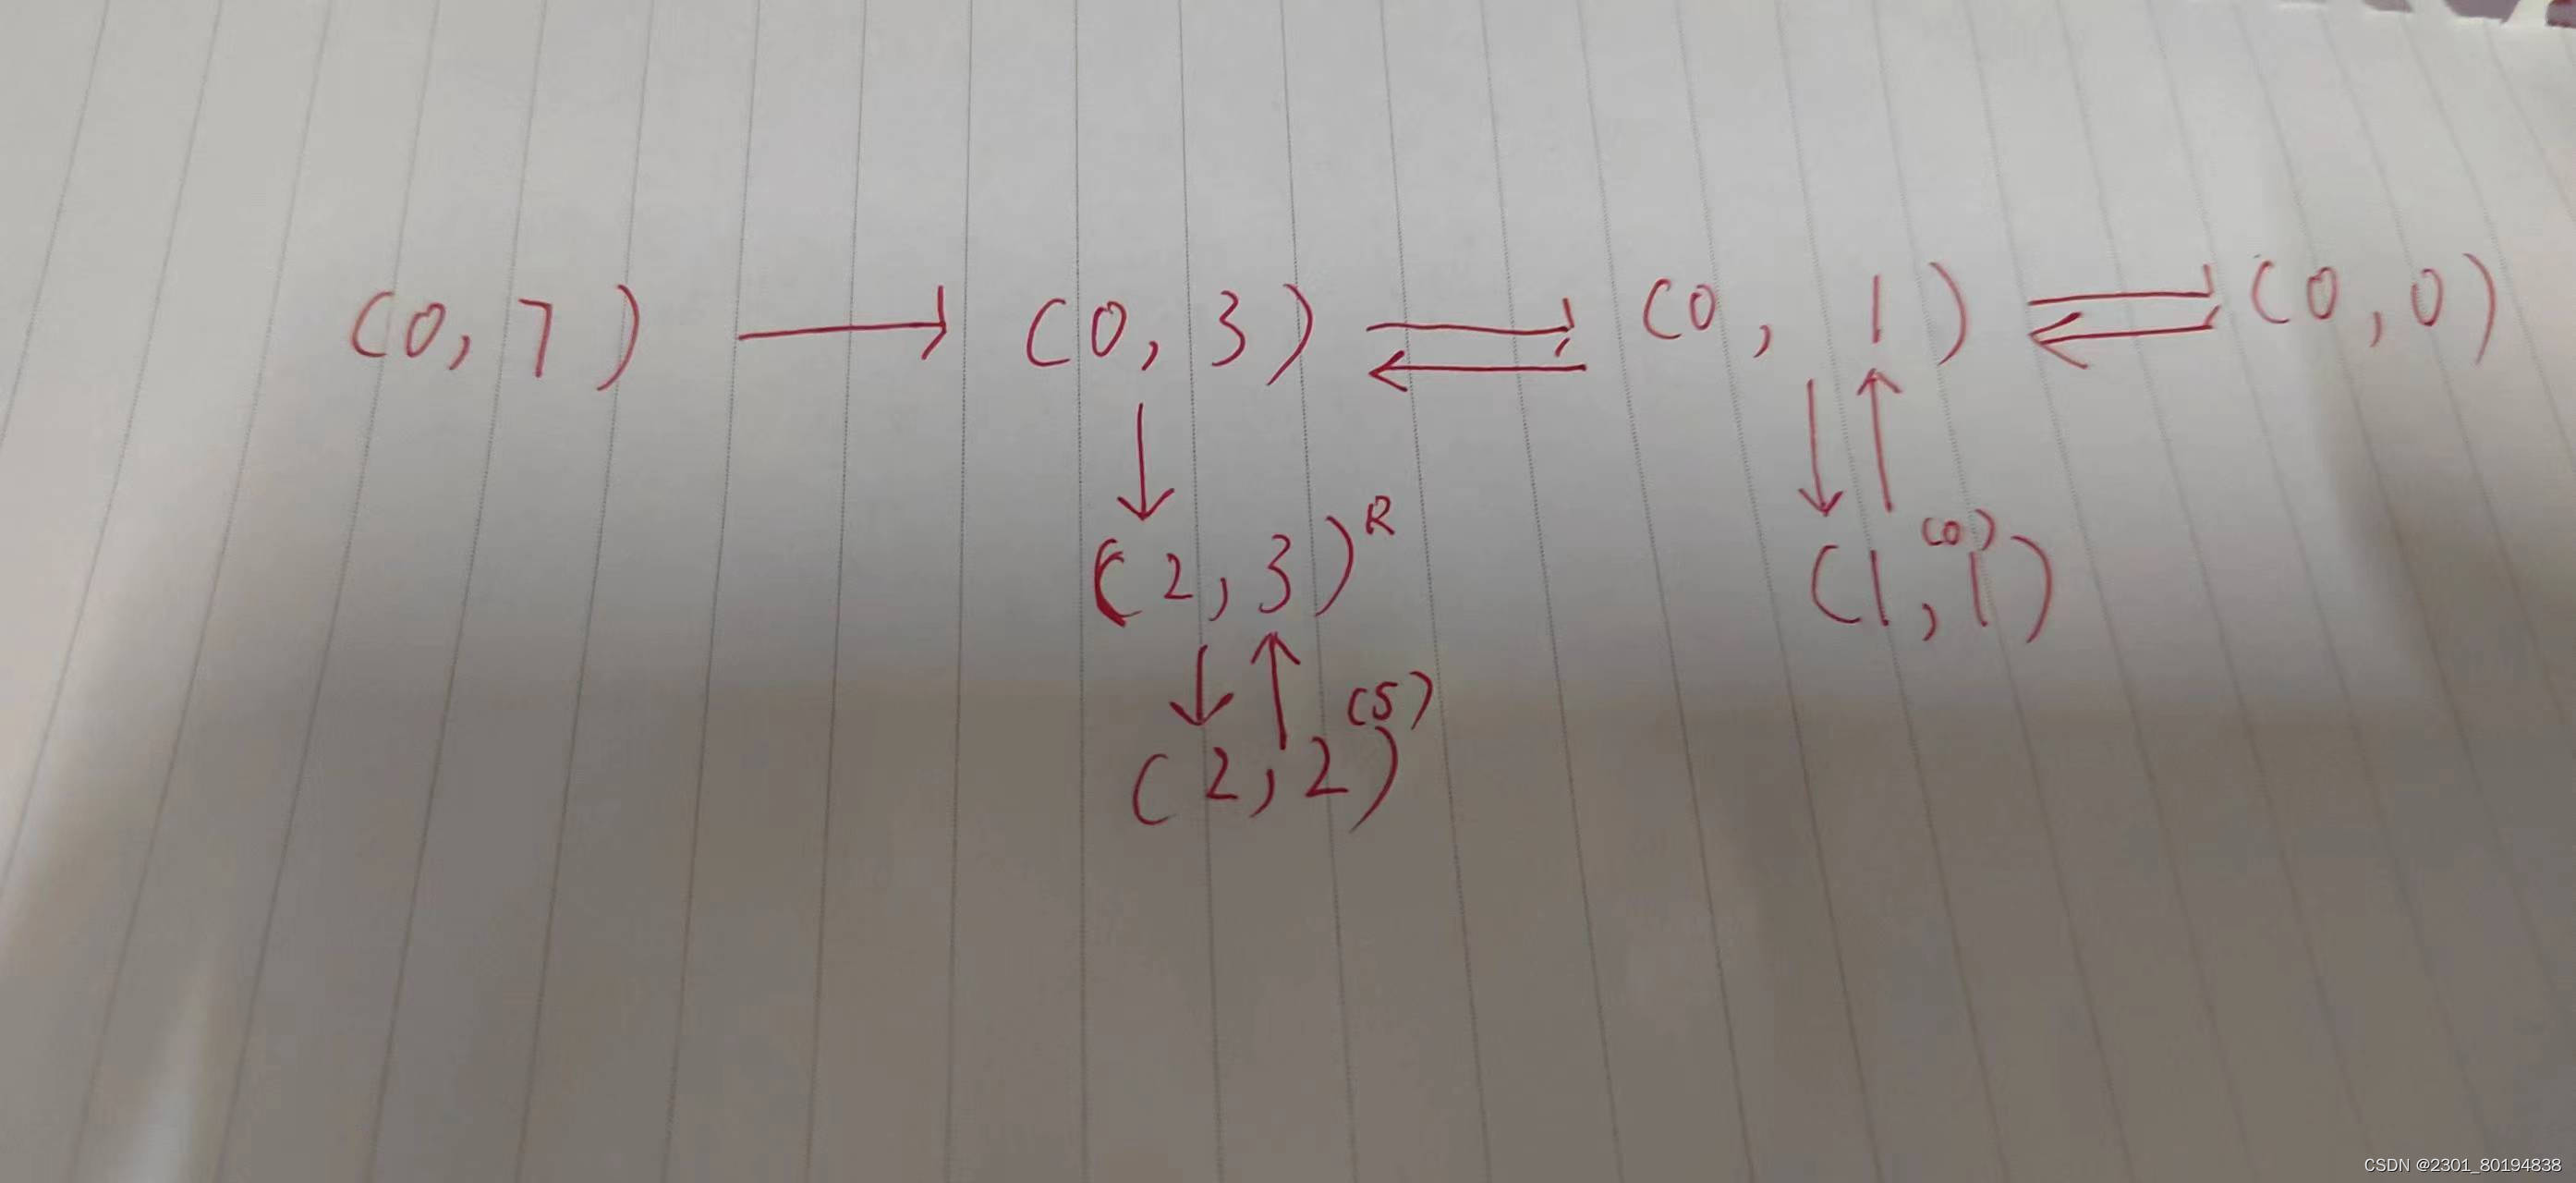 (0, 7) → (0, 3) ⇌ (0, 1) ⇌ (0, 0)
↓ ↓ ↑
(2, 3) R (1, 1) (0)
↓ ↑
(2, 2) (5)
CSDN @2301_80194838